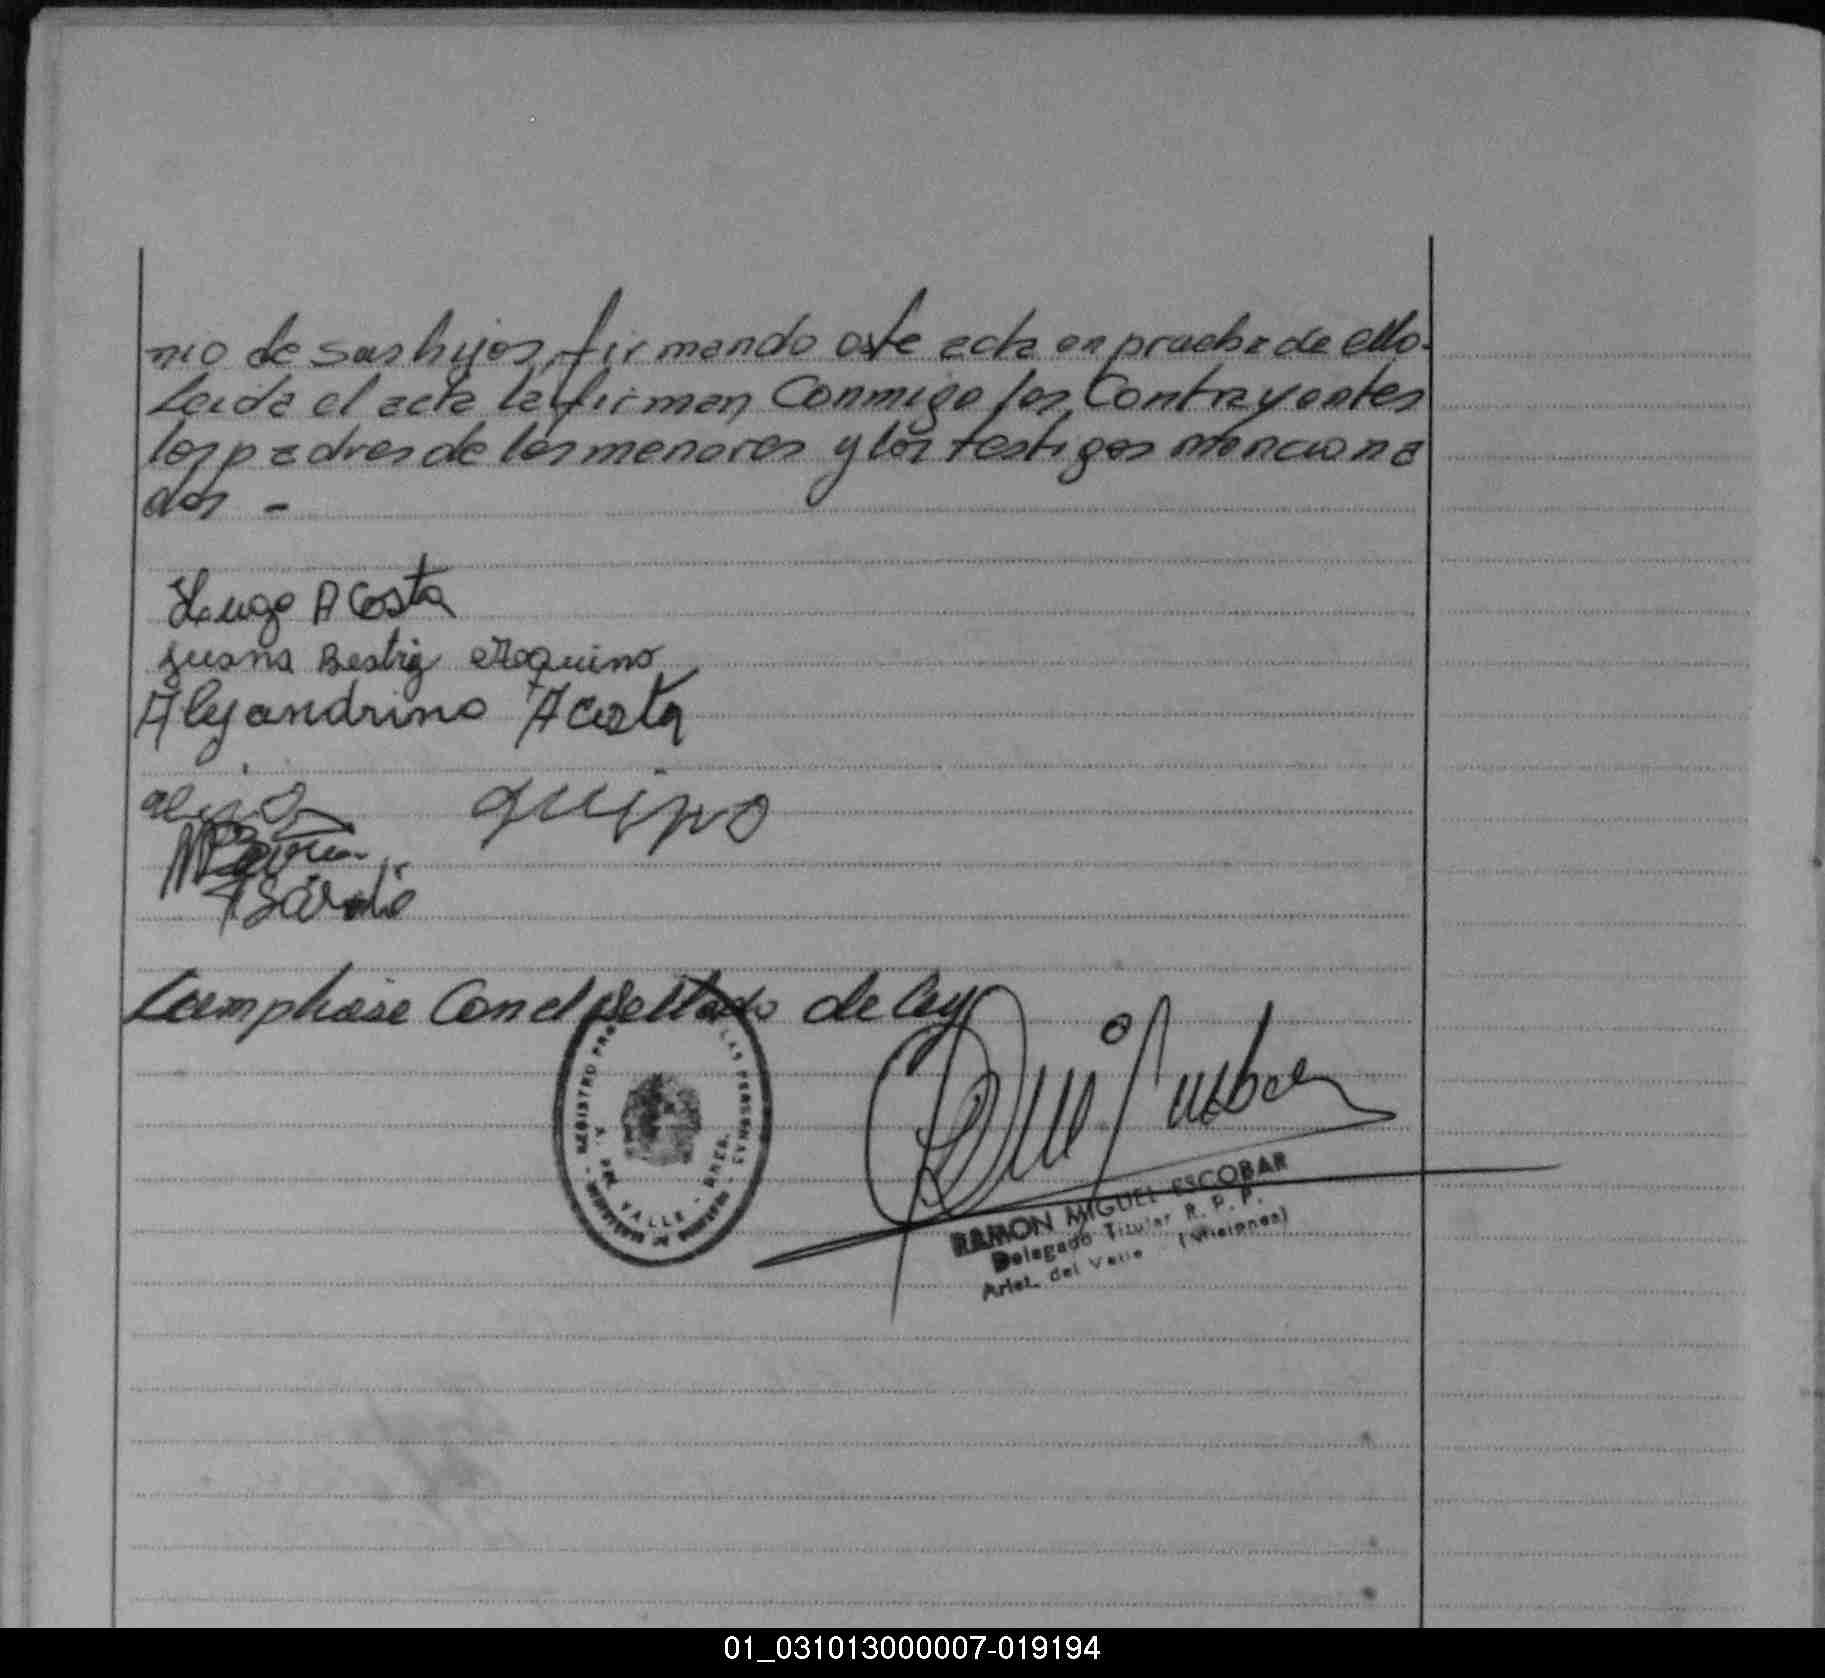 nio de sus hijos, firmando este acta en prueba de ello.
Leida el acta la firman Conmigo los Contrayentes
los padres de los menores y los testigos menciona
dos -
Hugo Acosta
Juana Beatriz Aquino
Alejandrino Acosta
Cúmplase Con el Sellado de ley
REGISTRO PRO LAS PERSONAS
VALLE
RAMON MIGUEL ESCOBAR
Delegado Titular R. P. P.
Arist. del Valle (Misiones)
01_031013000007-019194